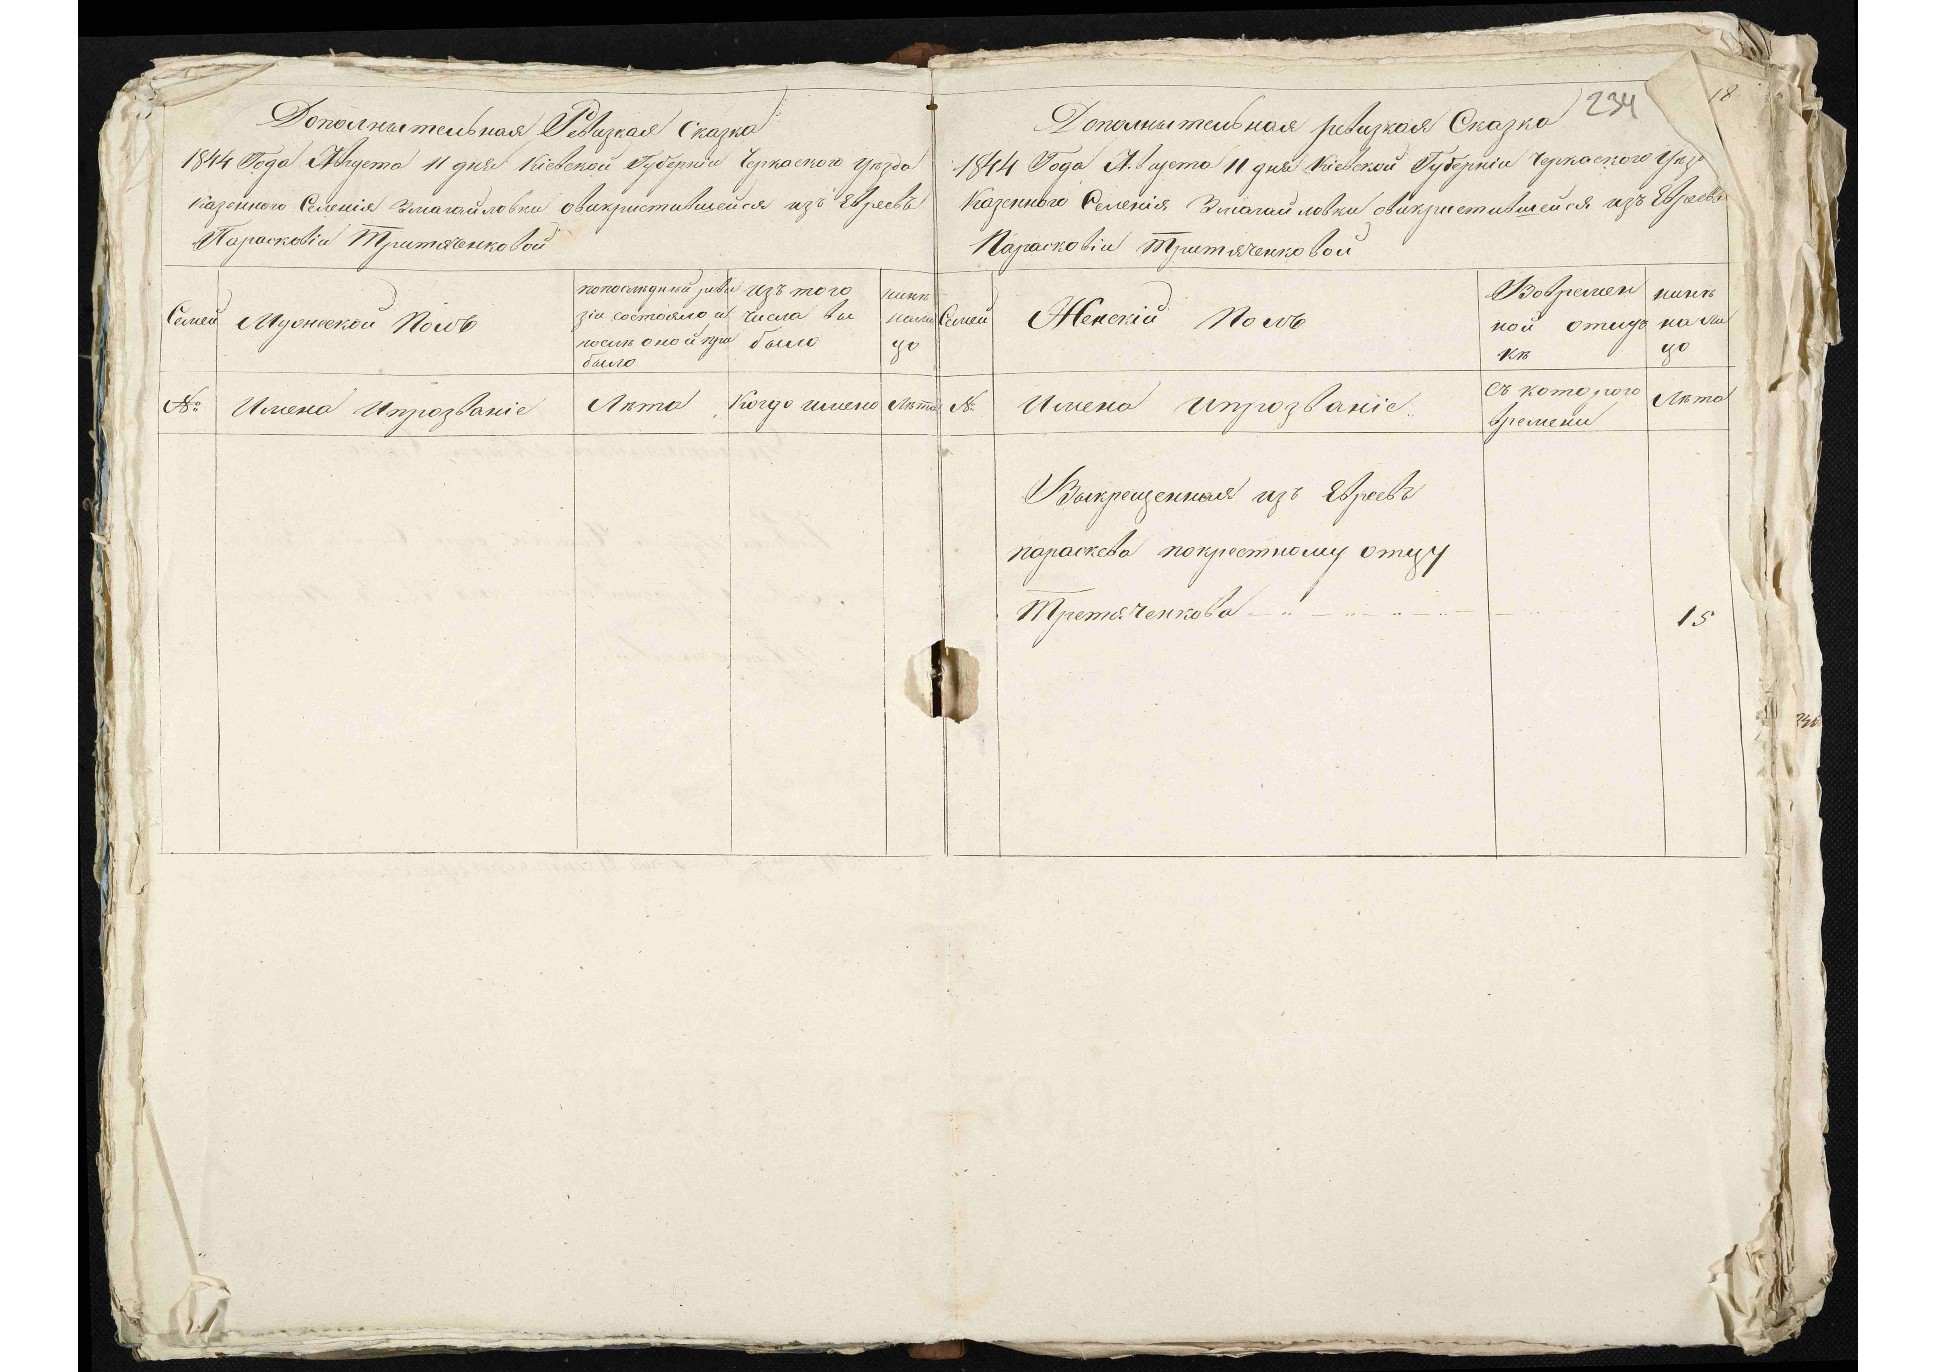 Дополнытельная Ревизкая Сказка
1844 Года Августа 11 дня Кіевской Губерніи Черкаского Уѣзда
Казенного Селенія Змагайловки овикриставшейся изъ Евреевъ
Парасковіи Тритяченковой
Семей
Мужеской Полъ
попослѣдней реви
зіи состояло и
послѣ оной при
было
изъ того
числа вы
было
нинѣ
нали
цо
№
Имена Ипрозваніе
Лѣта
Когдо имено
Лѣта
234
18
Дополнытельная ревизкая Сказка
1844 Года Августа 11 дня Кіевской Губерніи Черкаского Уѣз
Казенного Селенія Змагайловки овикриставшейся изъ Евреевъ
Парасковіи Тритяченковой
Семей
Женскій Полъ
Вовремен
ной отлуч
кѣ
нинѣ
на ли
цо
№
Имена Ипрозваніе
съ которого
времени
Лѣта
Выкрещенная изъ Евреевъ
параскева покрестному отцу
Третяченкова
15